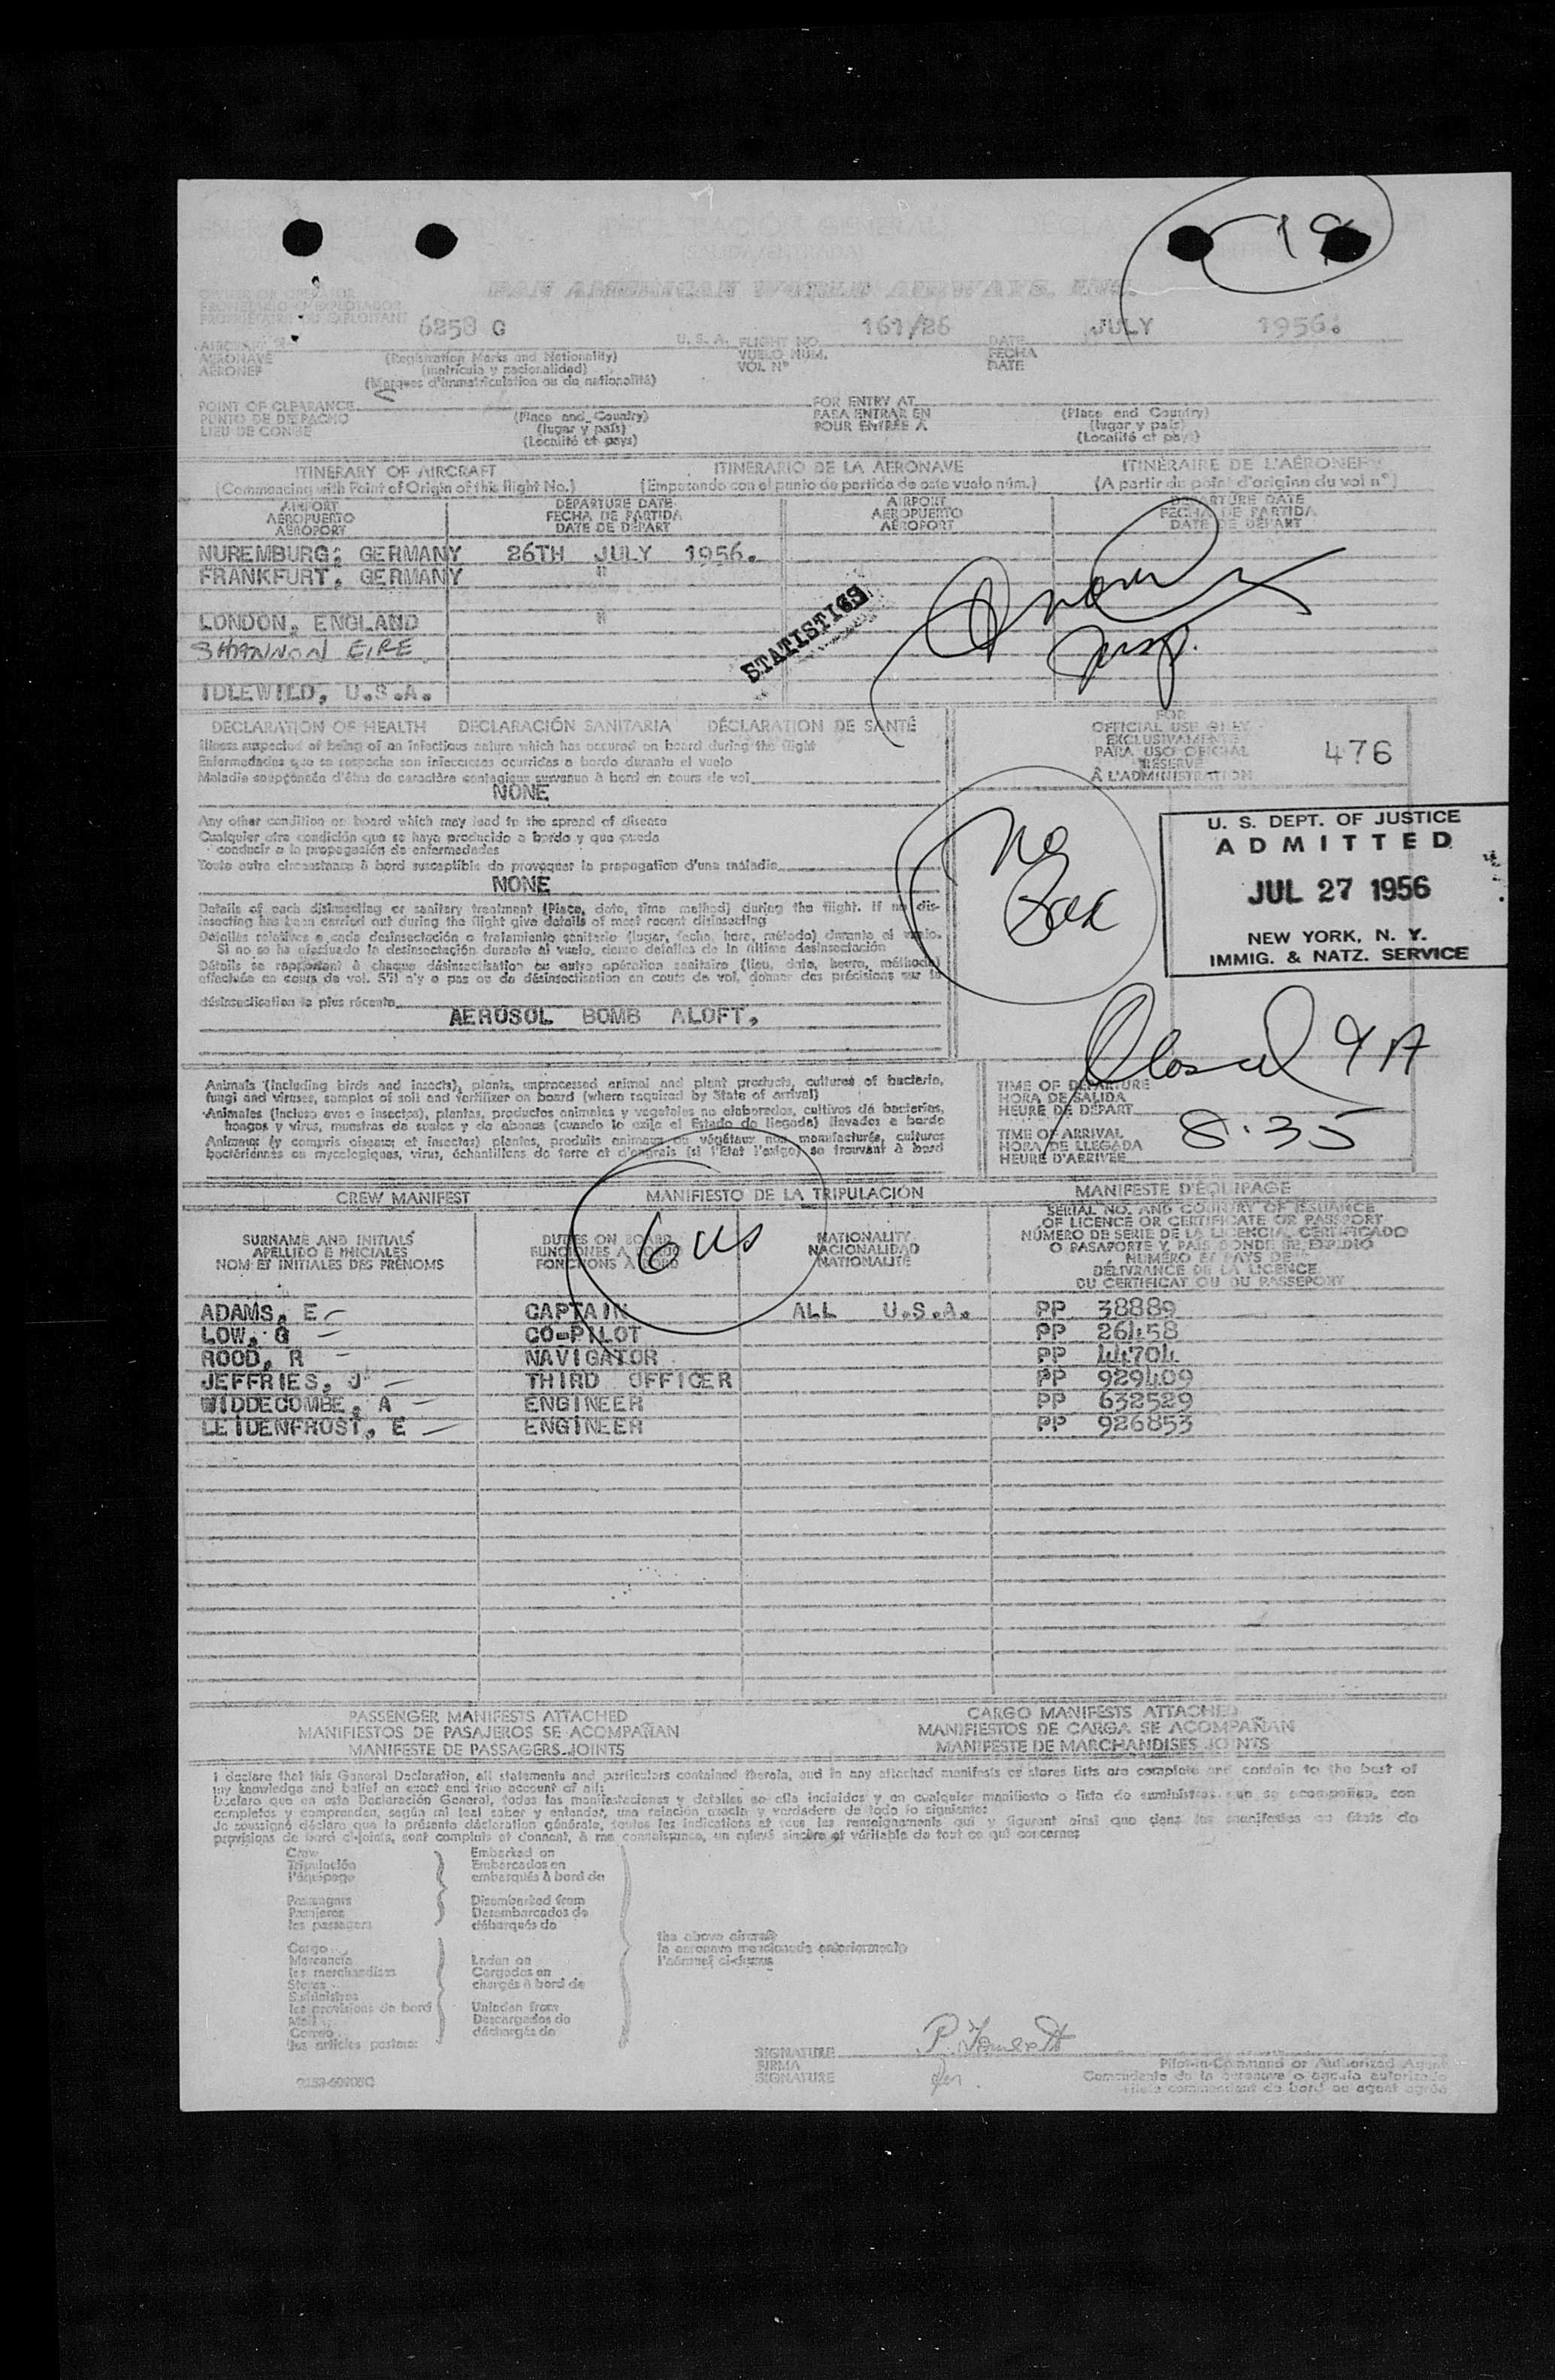 19
DECLARACIÓN GENERAL
PAN AMERICAN WORLD AIRWAYS, INC.
OWNER OR OPERATOR
PROPIETARIO O EXPLOTADOR
PROPRIÉTAIRE OU EXPLOITANT
6258 G U. S. A. 161/26 JULY 1956.
AIRCRAFT
AERONAVE
AÉRONEF
(Registration Marks and Nationality)
(matrícula y nacionalidad)
(Marques d'immatriculation ou de nationalité)
FLIGHT NO.
VUELO NÚM.
VOL Nº
DATE
FECHA
DATE
POINT OF CLEARANCE
PUNTO DE DESPACHO
LIEU DE CONGÉ
(Place and Country)
(lugar y país)
(Localité et pays)
FOR ENTRY AT
PARA ENTRAR EN
POUR ENTRÉE À
(Place and Country)
(lugar y país)
(Localité et pays)
ITINERARY OF AIRCRAFT ITINERARIO DE LA AERONAVE ITINÉRAIRE DE L'AÉRONEF
(Commencing with Point of Origin of this flight No.) (Empezando con el punto de partida de este vuelo núm.) (A partir du point d'origine du vol nº)
AIRPORT
AEROPUERTO
AÉROPORT
DEPARTURE DATE
FECHA DE PARTIDA
DATE DE DÉPART
AIRPORT
AEROPUERTO
AÉROPORT
DEPARTURE DATE
FECHA DE PARTIDA
DATE DE DÉPART
NUREMBURG; GERMANY 26TH JULY 1956.
FRANKFURT, GERMANY "
LONDON, ENGLAND "
SHANNON EIRE
IDLEWILD, U.S.A.
STATISTICS
Insp.
DECLARATION OF HEALTH DECLARACIÓN SANITARIA DÉCLARATION DE SANTÉ
Illness suspected of being of an infectious nature which has occured on board during the flight
Enfermedades que se sospecha son infecciosas ocurridas a bordo durante el vuelo
Maladie soupçonnée d'être de caractère contagieux survenue à bord en cours de vol
NONE
Any other condition on board which may lead to the spread of disease
Cualquier otra condición que se haya producido a bordo y que pueda
conducir a la propagación de enfermedades
Toute autre circonstance à bord susceptible de provoquer la propagation d'une maladie
NONE
Details of each disinsecting or sanitary treatment (Place, date, time method) during the flight. If no dis-
insecting has been carried out during the flight give details of most recent disinsecting
Detalles relativos a cada desinsectación o tratamiento sanitario (lugar, fecha, hora, método) durante el vuelo.
Si no se ha efectuado la desinsectación durante el vuelo, dense detalles de la última desinsectación
Détails se rapportant à chaque désinsectisation ou autre opération sanitaire (lieu, date, heure, méthode)
effectuée en cours de vol. S'il n'y a pas eu de désinsectisation en cours de vol, donner des précisions sur la
désinsectisation la plus récente
AEROSOL BOMB ALOFT,
FOR
OFFICIAL USE ONLY
EXCLUSIVAMENTE
PARA USO OFICIAL
RÉSERVÉ
À L'ADMINISTRATION
476
No
U. S. DEPT. OF JUSTICE
ADMITTED
JUL 27 1956
NEW YORK, N. Y.
IMMIG. & NATZ. SERVICE
Closed 9 A
Animals (including birds and insects), plants, unprocessed animal and plant products, cultures of bacteria,
fungi and viruses, samples of soil and fertilizer on board (where required by State of arrival)
Animales (incluso aves e insectos), plantas, productos animales y vegetales no elaborados, cultivos de bacterias,
hongos y virus, muestras de suelos y de abonos (cuando lo exija el Estado de llegada) llevados a bordo
Animaux (y compris oiseaux et insectes) plantes, produits animaux ou végétaux non manufacturés, cultures
bactériennes ou mycologiques, virus, échantillons de terre et d'engrais (si l'Etat l'exige) se trouvant à bord
TIME OF DEPARTURE
HORA DE SALIDA
HEURE DE DÉPART
TIME OF ARRIVAL
HORA DE LLEGADA
HEURE D'ARRIVÉE
8.35
CREW MANIFEST MANIFIESTO DE LA TRIPULACIÓN MANIFESTE D'ÉQUIPAGE
SURNAME AND INITIALS
APELLIDO E INICIALES
NOM ET INITIALES DES PRÉNOMS
DUTIES ON BOARD
FUNCIONES A BORDO
FONCTIONS À BORD
6 US
NATIONALITY
NACIONALIDAD
NATIONALITÉ
SERIAL NO. AND COUNTRY OF ISSUANCE
OF LICENCE OR CERTIFICATE OR PASSPORT
NÚMERO DE SERIE DE LA LICENCIA, CERTIFICADO
O PASAPORTE Y PAÍS DONDE SE EXPIDIÓ
NUMÉRO ET PAYS DE
DÉLIVRANCE DE LA LICENCE
DU CERTIFICAT OU DU PASSEPORT
ADAMS, E CAPTAIN ALL U.S.A. PP 38889
LOW, G CO-PILOT PP 26458
ROOD, R NAVIGATOR PP 44704
JEFFRIES, J THIRD OFFICER PP 929409
WIDDECOMBE, A ENGINEER PP 632529
LEIDENFROST, E ENGINEER PP 926853
PASSENGER MANIFESTS ATTACHED
MANIFIESTOS DE PASAJEROS SE ACOMPAÑAN
MANIFESTE DE PASSAGERS JOINTS
CARGO MANIFESTS ATTACHED
MANIFIESTOS DE CARGA SE ACOMPAÑAN
MANIFESTE DE MARCHANDISES JOINTS
I declare that this General Declaration, all statements and particulars contained therein, and in any attached manifests or stores lists are complete and contain to the best of
my knowledge and belief an exact and true account of all:
Declaro que en esta Declaración General, todas las manifestaciones y detalles en ella incluidos y en cualquier manifiesto o lista de suministros que se acompañen, son
completos y comprenden, según mi leal saber y entender, una relación exacta y verdadera de todo lo siguiente:
Je soussigné déclare que la présente déclaration générale, toutes les indications et tous les renseignements qui y figurent ainsi que dans les manifestes ou états de
provisions de bord ci-joints, sont complets et donnent, à ma connaissance, un relevé sincère et véritable de tout ce qui concerne:
Crew
Tripulación
l'équipage
Embarked on
Embarcados en
embarqués à bord de
Passengers
Pasajeros
les passagers
Disembarked from
Desembarcados de
débarqués de
Cargo
Mercancía
les marchandises
Stores
Suministros
les provisions de bord
Mail
Correo
les articles postaux
Laden on
Cargados en
chargés à bord de
Unladen from
Descargados de
déchargés de
the above aircraft
la aeronave mencionada anteriormente
l'aéronef ci-dessus
SIGNATURE
FIRMA
SIGNATURE
Pilot-in-Command or Authorized Agent
Comandante de la aeronave o agente autorizado
Pilote commandant de bord ou agent agréé